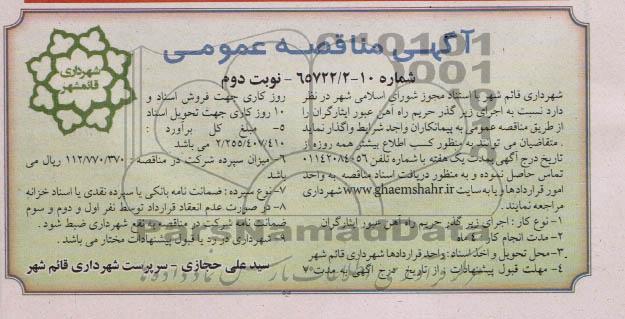 آگهی مناقصه عمومی
شماره ۱۰-۶۵۷۲۲/۲ - نوبت دوم
شهرداری
قائمشهر
شهرداری قائم شهر با استناد مجوز شورای اسلامی شهر در نظر
دارد نسبت به اجرای زیر گذر حریم راه آهن عبور ایثارگران را
از طریق مناقصه عمومی به پیمانکاران واجد شرایط واگذار نماید
. متقاضیان می توانند به منظور کسب اطلاع بیشتر همه روزه از
تاریخ درج آگهی بمدت یک هفته با شماره تلفن ۰۱۱۴۲۰۸۴۰۵۶
تماس حاصل نموده و به منظور دریافت اسناد مناقصه به واحد
امور قراردادها و یا به سایت www.ghaemshahr.ir شهرداری
مراجعه نمایند .
۱- نوع کار : اجرای زیر گذر حریم راه آهن عبور ایثارگران
۲- مدت انجام کار : ۴ ماه
۳- محل تحویل و اخذ اسناد : واحد قراردادها شهرداری قائم شهر
۴- مهلت قبول پیشنهادات : از تاریخ درج آگهی به مدت ۷
روز کاری جهت فروش اسناد و
۱۰ روز کاری جهت تحویل اسناد
۵- مبلغ کل برآورد :
۲/۲۵۵/۴۰۷/۴۱۰ می باشد
۶- میزان سپرده شرکت در مناقصه : ۱۱۲/۷۷۰/۳۷۰ ریال می
باشد
۷- نوع سپرده : ضمانت نامه بانکی یا سپرده نقدی یا اسناد خزانه
۸- در صورت عدم انعقاد قرارداد توسط نفر اول و دوم و سوم
ضمانت نامه شرکت در مناقصه به نفع شهرداری ضبط شود .
۹- شهرداری در رد یا قبول پیشنهادات مختار می باشد .
سید علی حجازی - سرپرست شهرداری قائم شهر
ParsNamadData